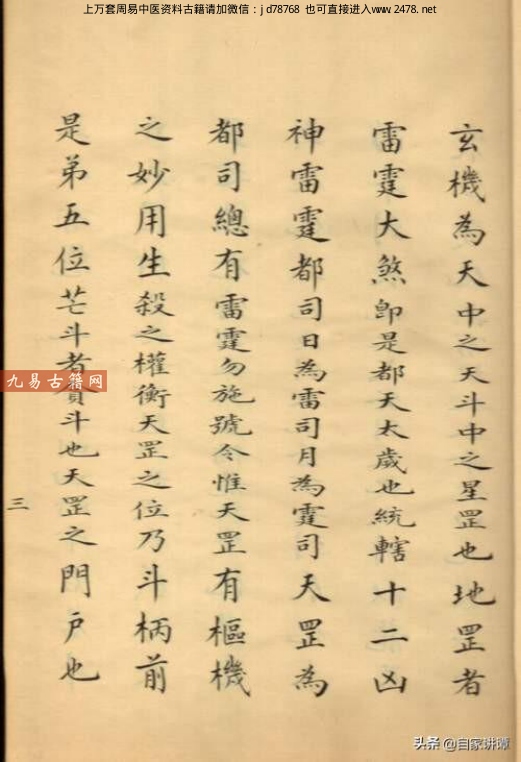 上万套周易中医资料古籍请加微信：jd78768 也可直接进入www.2478.net
玄機為天中之天斗中之星罡也地罡者
雷霆大煞即是都天太歲也統轄十二凶
神雷霆都司日為雷司月為霆司天罡為
都司總有雷霆勿施號令惟天罡有樞機
之妙用生殺之權衡天罡之位乃斗柄前
是弟五位芒斗者貪斗也天罡之門戶也
三
九易古籍网
头条 @自家琪璋